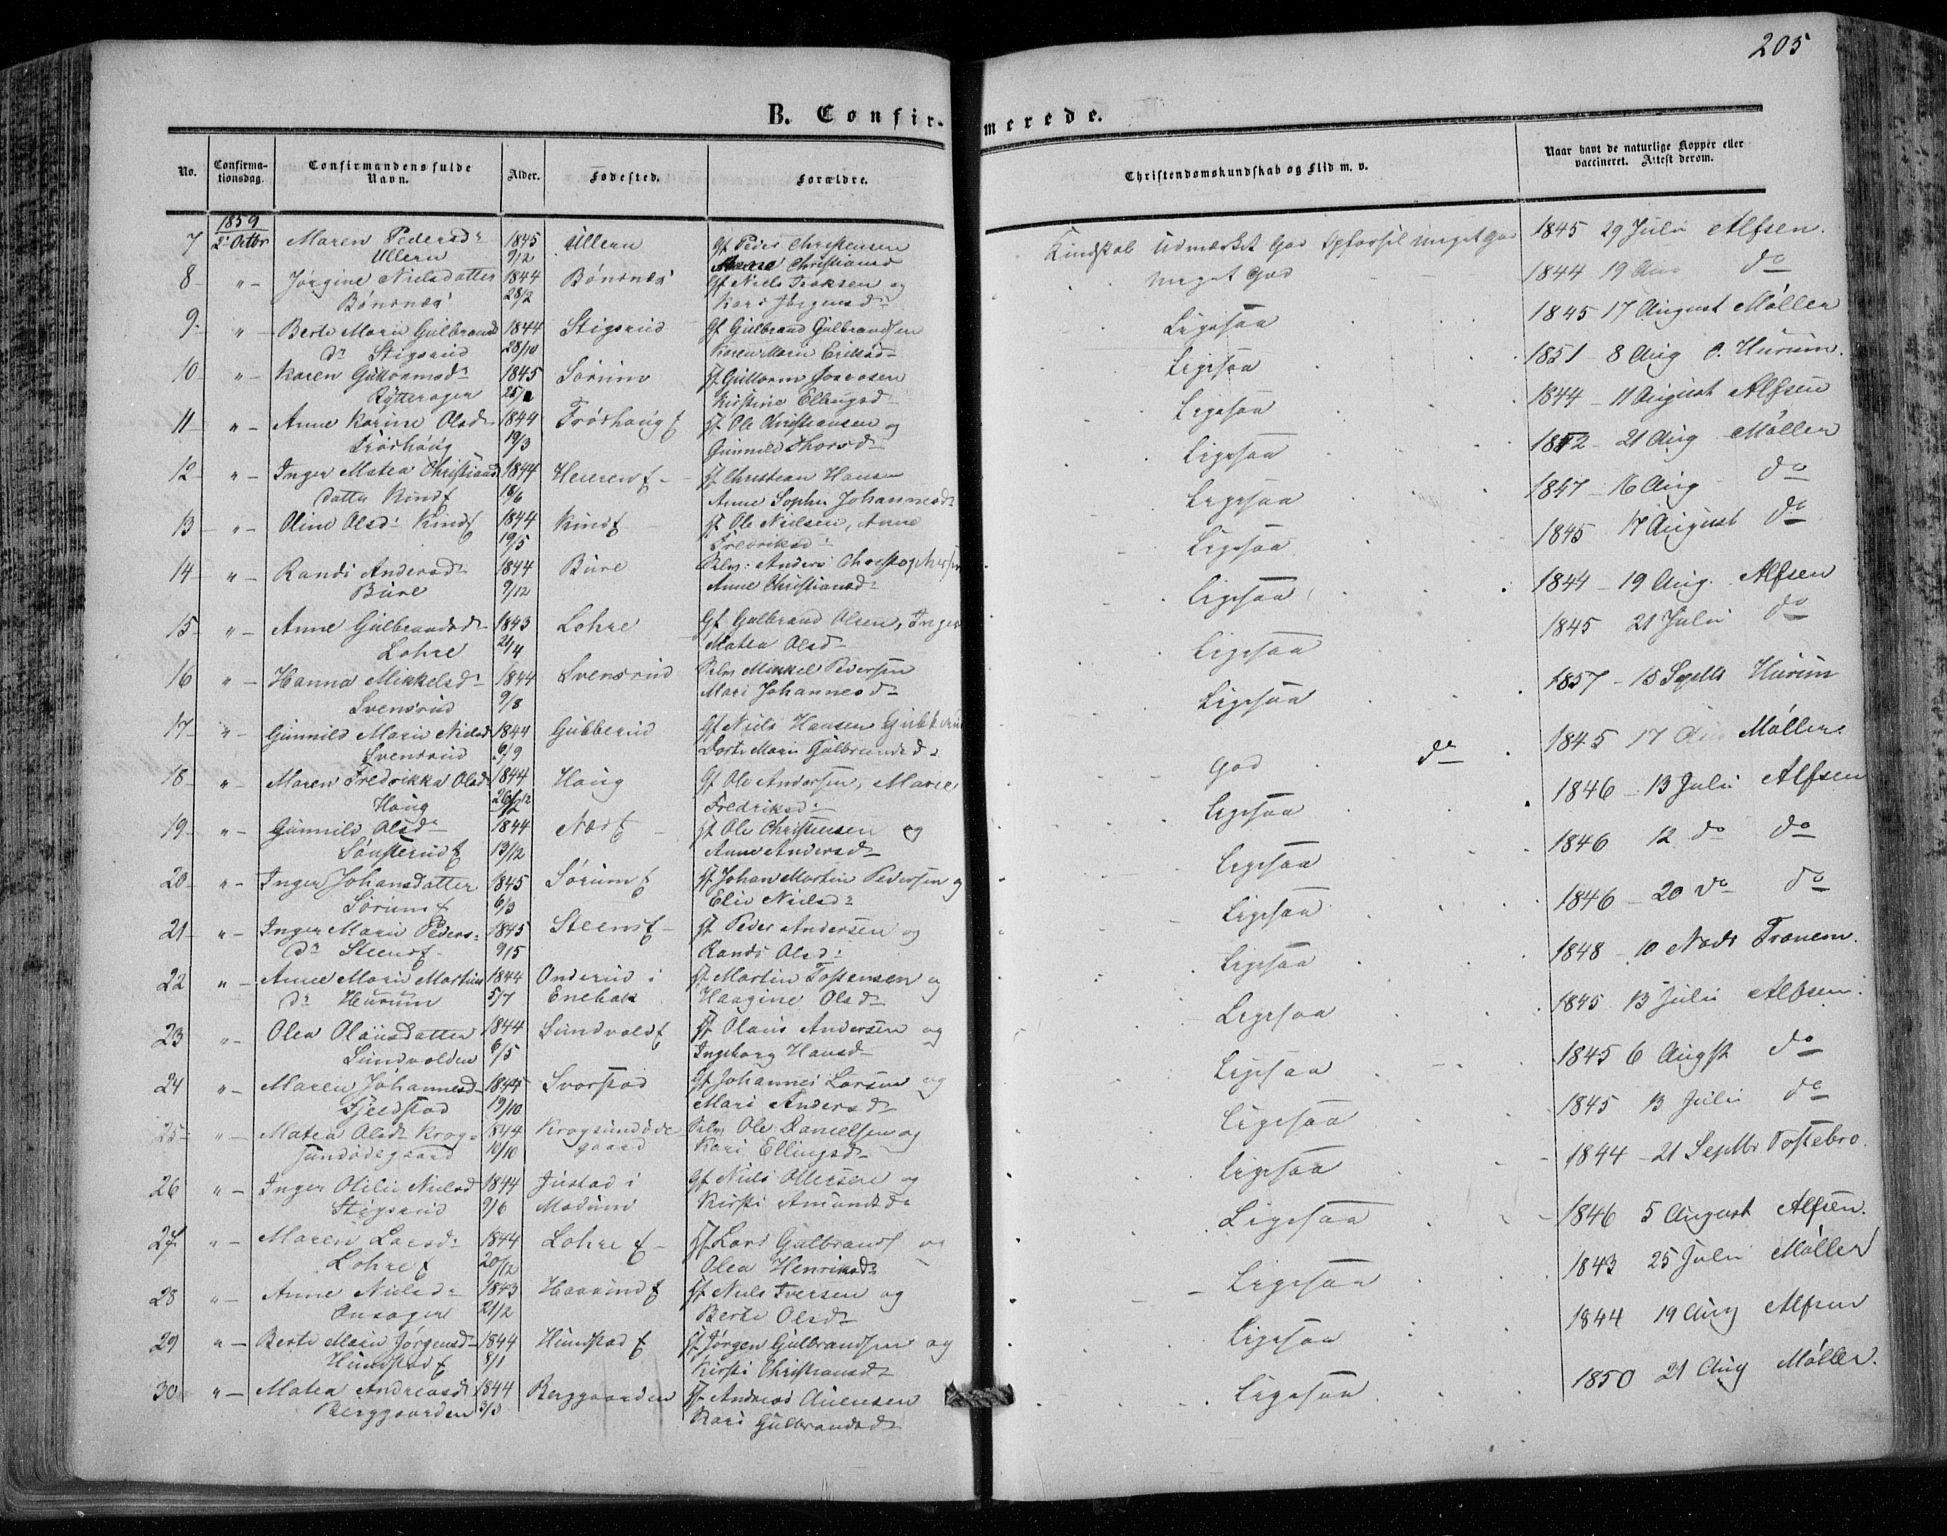 205
B. Confirmerede.
No. Confirmationsdag. Confirmandens fulde Navn. Alder. Fødested. Forældre. Christendomskundskab og Flid m. v. Naar havt de naturlige Kopper eller vaccineret. Attest derom.
1859
7 2 Octbr Maren Pedersd: 1845 Ullern Gf Peder Christensen 1845 29 Juli Alfsen.
Ullern 9/2 Christiansd Kundskab Udmærket God Opførsel meget God
8 " Jørgine Nielsdatter 1844 Bønsnæs Gf Niels Isaksen og meget God 1844 19 Aug do
Bønsnæs 28/2 Kari Jørgensd:
9 " Berte Marie Gulbrands 1844 Stigsrud Gf Gulbrand Gulbrandsen Ligesaa 1845 17 August Møller
dr Stigsrud 28/10 Karen Marie Eriksd:
10 " Karen Guttormsd: 1845 Sørum If Guttorm Ligesaa 1851 8 Aug O. Hurum.
Rytterager 25/2 Kirstine Ellingsd:
11 " Anne Karine Olsd: 1844 Frøshaug f If Ole Christiansen og Ligesaa 1844 11 August Alfsen
Frøshaug 19/3 Gunnild Thorsd:
12 " Inger Matea Christians 1844 Heieren f If Christian Hansen Ligesaa 1852 21 Aug Møller
datter 18/6 Anne Sophie Johannesd:
13 " Oline Olsd: 1844 If Ole Nielsen, Anne Ligesaa 1847 16 Aug do
19/5 Fredriksd:
14 " Randi Andersd: 1844 Bure Selv: Anders Christophersen Ligesaa 1845 17 August do
Bure 9/12 Anne Christiansd:
15 " Anne Gulbrandsd: 1843 Lohre Gf Gulbrand Olsen, Inger Ligesaa 1844 19 Aug. Alfsen
Lohre 21/4 Matea Olsd:
16 " Hanna Mikkelsd: 1844 Svensrud Selv Mikkel Pedersen Ligesaa 1845 21 Juli do
Svensrud 9/8 Mari Johannesd:
17 " Gunnild Marie Nielsd 1844 Gubberud Gf Niels Hansen Ligesaa 1857 15 Septb Hurum
Svensrud 6/9 Dorte Marie Gulbrandsd:
18 " Maren Fredrikka Olsd 1844 Haug Gf Ole Andersen, Marie God do 1845 17 Aug Møller.
Haug 26/12 Fredriksd:
19 " Gunnild Olsd: 1844 Næs f If Ole Christensen og Ligesaa 1846 13 Juli Alfsen
Sønsterud f 13/12 Anne Andersd:
20 " Inger Johansdatter 1845 Sørum f If Johan Martin Pedersen og Ligesaa 1846 12 do do
Sørum f 6/3 Elie Nielsd:
21 " Inger Marie Peders- 1845 Steens f If Peder Andersen og Ligesaa 1846 20 do do
dr Steens f 9/5 Randi Olsd:
22 " Anne Marie Martins 1844 Onderud i If Martin Tostensen og Ligesaa 1848 10 Novbr Tronem.
dr Hurum 5/7 Enebak Haagine Olsd:
23 " Olea Olausdatter 1844 Sundvold f If Olaus Andersen og Ligesaa 1845 13 Juli Alfsen.
Sundvolden 6/5 Ingeborg Hansd:
24 " Maren Johannesd: 1844 Svarstad Gf Johannes Larsen og Ligesaa 1845 6 Augst do
Fjeldstad 19/10 Mari Andersd:
25 " Matea Olsd: Krog- 1844 Krogsundøde- Selv Ole Danielsen og Ligesaa 1845 13 Juli do
sundødegaard 10/10 gaard Kari Ellingsd:
26 " Inger Otilie Nielsd 1844 Justad i Gf Niels Ottersen og Ligesaa 1844 21 Septbr Tostebro.
Stigsrud 9/6 Modum Kirsti Amundsd:
27 " Maren Larsd: 1844 Lohre f If Lars Gulbrands og Ligesaa 1846 5 August Alfsen.
Lohre f 20/12 Olea Henriksd:
28 " Anne Nielsd: 1843 If Niels Iversen og Ligesaa 1843 25 Juli Møller
Onsager 21/2 Berte Olsd:
29 " Berte Marie Jørgensd: 1844 Hundstad f If Jørgen Gulbrandsen og Ligesaa 1844 19 Aug Alfsen
Hundstad f 8/1 Kirsti Christiansd:
30 " Matea Andreasd: 1844 Berggaarden If Andreas Auensen Ligesaa 1850 21 Aug Møller.
Berggaarden 3/3 Kari Gulbrandsd: